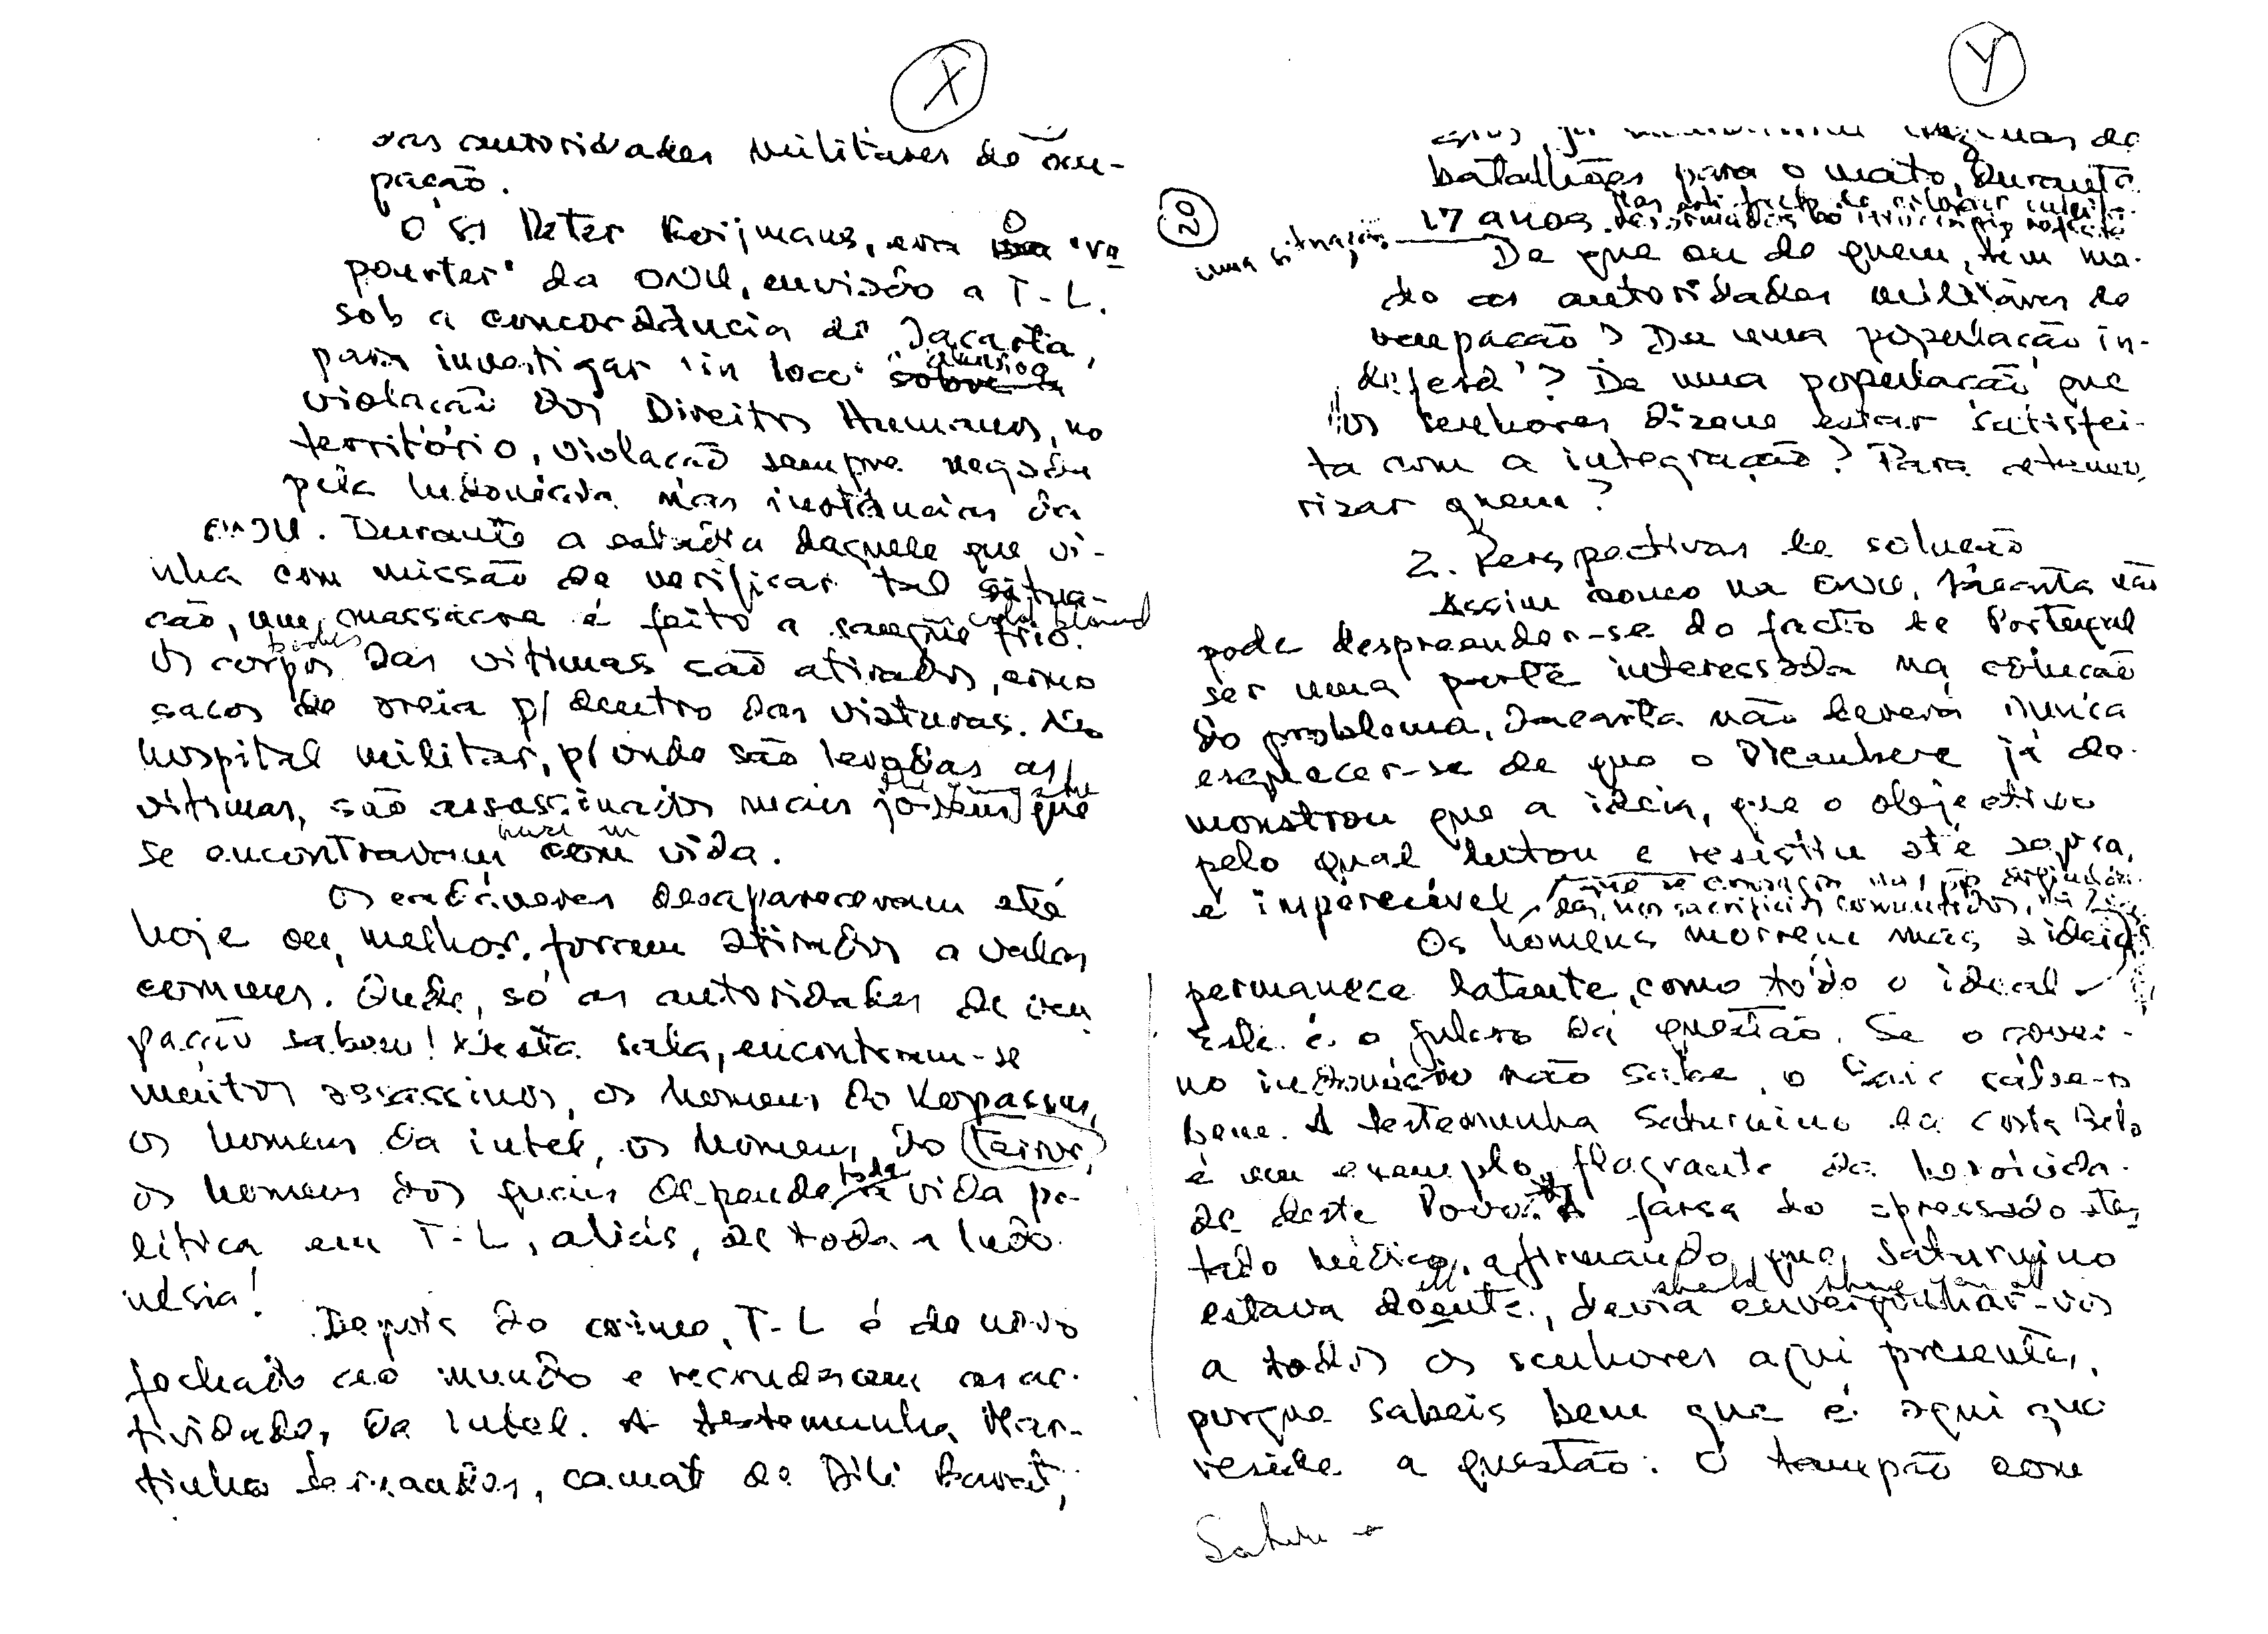 X
das autoridades militares de ocu-
pação.
O Sr Peter Koijmans, era o "ra
pourter" da ONU, enviado a T-L.
sob a concordância de Jacarta,
para investigar 'in loco' a
violação dos Direitos Humanos, no
território, violação sempre negada
pela Indonésia nas instâncias da
ONU. Durante a estadia daquele que vi-
nha com missão de verificar tal situa-
ção, um massacre é feito a sangue frio. cold blood
bodies
Os corpos das vítimas são atirados, como
sacos de areia p/ dentro das viaturas. No
hospital militar, p/ onde são levadas as
vítimas, são assassinados mais jovens que
se encontravam com vida.
Os cadáveres desapareceram até
hoje ou, melhor, foram atirados a valas
comuns. Onde, só as autoridades de ocu
pação sabem! Nesta sala, encontram-se
muitos assassinos, os homens do Kopassus,
os homens da intel, os homens do
os homens dos quais depende toda vida po-
lítica em T-L, aliás, de toda a Indo-
nésia!
Depois do crime, T-L é de novo
fechado ao mundo e recrudescem as ac-
tividades da Intel. A testemunha Mar-
tinho Fernandes, camat de Dili Barat,
Y
batalhões para o mato, durante
2
17 anos.
uma situação
De que ou de quem, têm me-
do as autoridades militares de
ocupação? De uma população in-
defesa? De uma população que
os senhores dizem estar satisfei-
ta com a integração? Para
rizar quem?
2. Perspectivas de solução
Assim como na ONU, Jacarta não
pode despreender-se do facto de Portugal
ser uma parte interessada na solução
do problema, Jacarta não deverá nunca
esquecer-se de que o Maubere já de-
monstrou que a ideia, que o objectivo
pelo qual lutou e resistiu até agora,
é imperecível
Os homens morrem mas a ideia
permanece latente, como todo o ideal
Este é o fulcro da questão. Se o gover-
no indonésio não sabe, o sabe-o
bem. A testemunha Saturnino da Costa Belo
é um exemplo flagrante da heroicida-
de deste Povo. A farsa do apressado ates
tado médico, afirmando que Saturnino
ill should shame you all
estava doente, devia envergonhar-vos
a todos os senhores aqui presentes,
porque sabeis bem que é aqui que
reside a questão. O tampão com